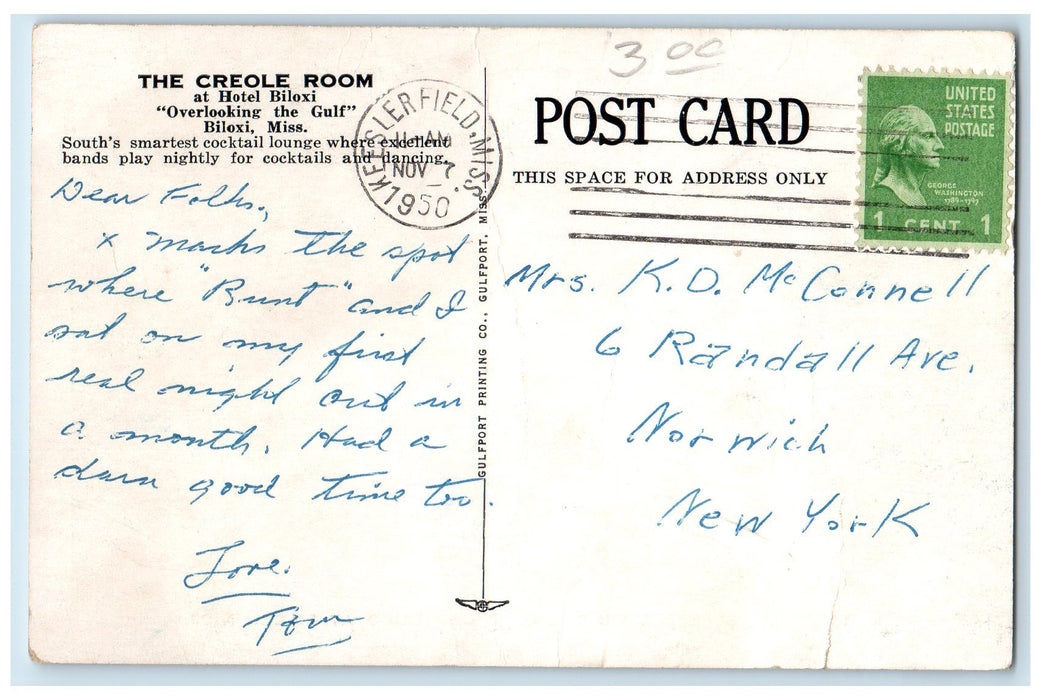 THE CREOLE ROOM
at Hotel Biloxi
"Overlooking the Gulf"
Biloxi, Miss.
South's smartest cocktail lounge where excellent
bands play nightly for cocktails and dancing.
Dear Folks,
x marks the spot
where "Runt" and I
sat on my first
real night out in
a month. Had a
darn good time too.
Love.
Tom
GULFPORT PRINTING CO., GULFPORT, MISS.
KEESLER FIELD, MISS.
11-AM
NOV 7
1950
3 00
POST CARD
THIS SPACE FOR ADDRESS ONLY
UNITED
STATES
POSTAGE
GEORGE
WASHINGTON
1789-1797
1 CENT 1
Mrs. K.D. McConnell
6 Randall Ave.
Norwich
New York